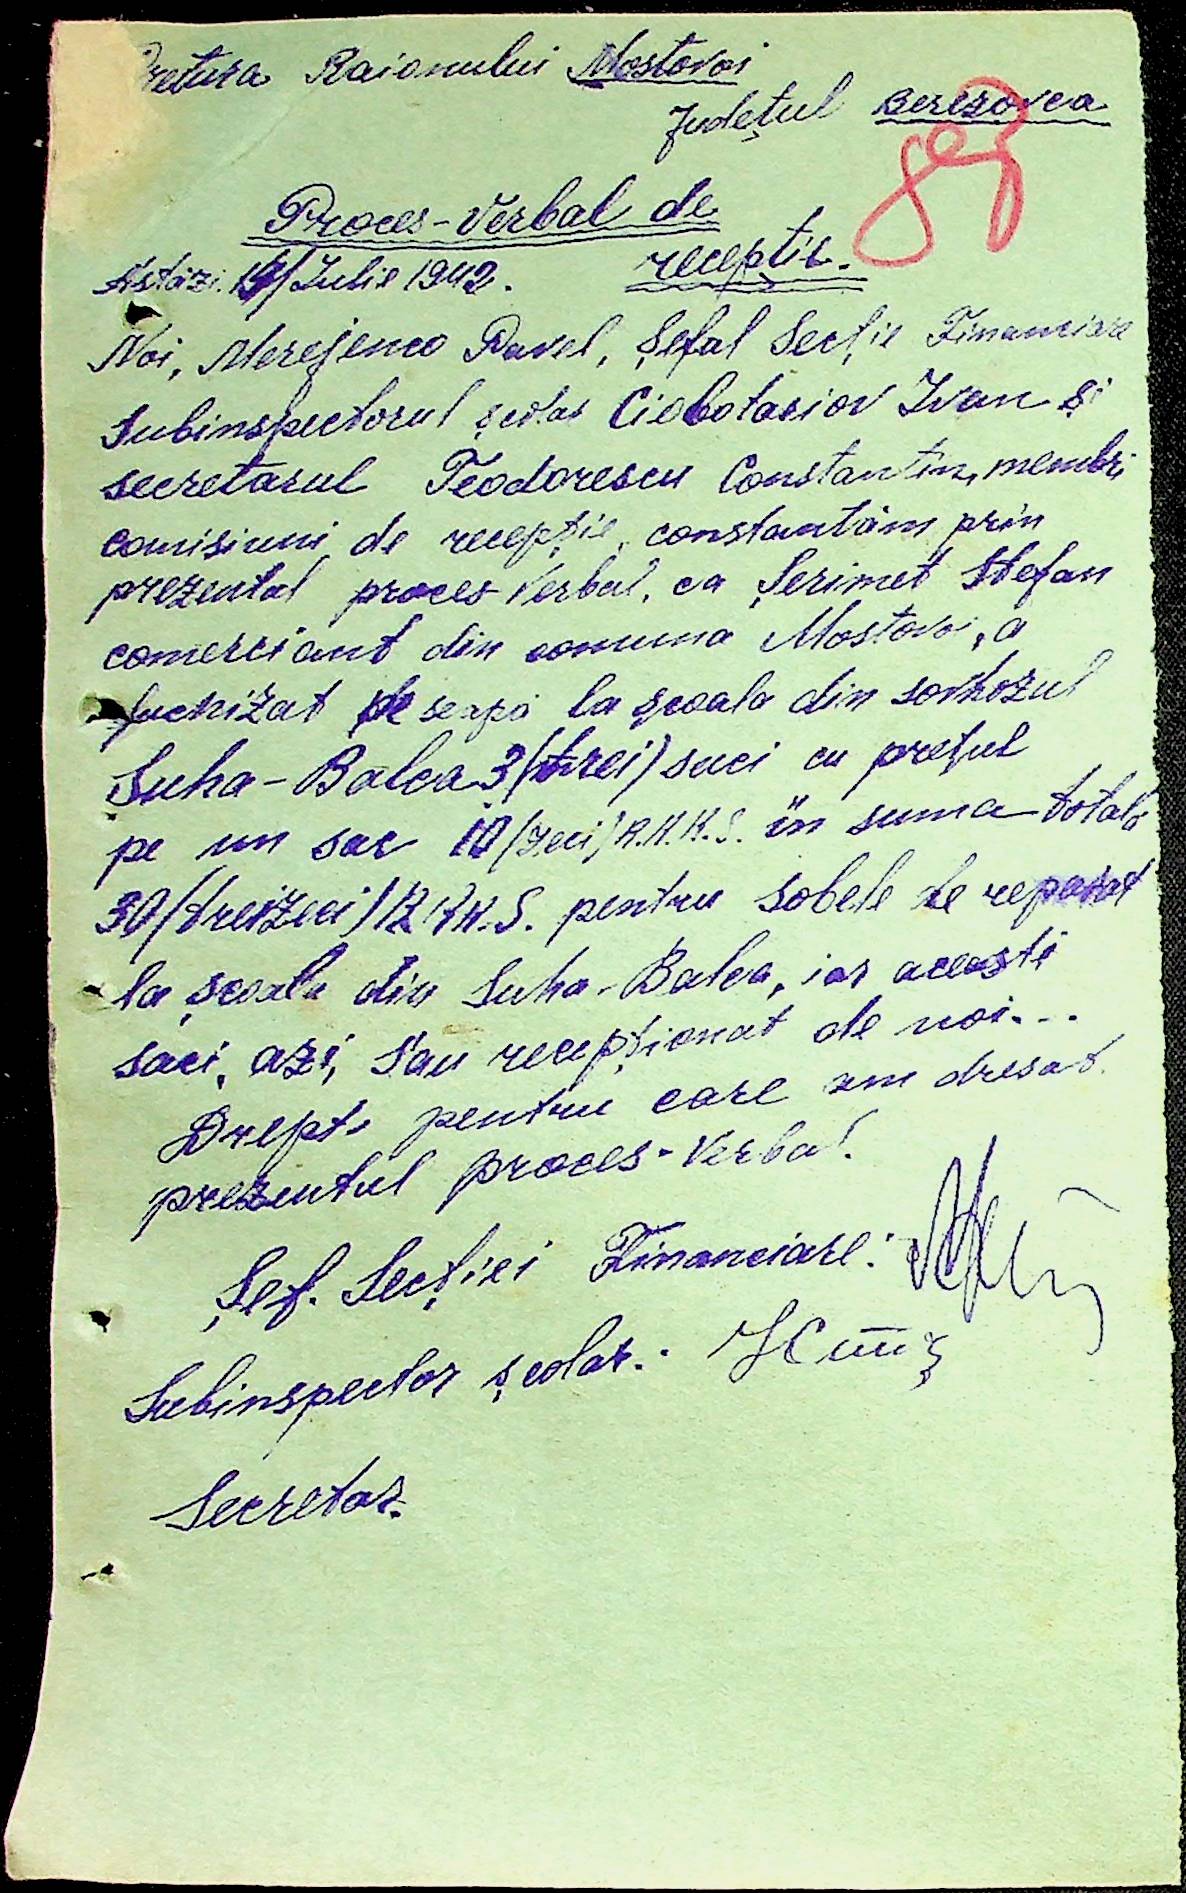 Pretura Raionului Mostovoi
Județul Berezovca
Proces-Verbal de
recepție.
Astăzi /Iulie 1942.
Noi, Merejenco Pavel, Șeful Secție Financiare
Subinspectorul școlar Ciobotariov Ivan și
secretarul Teodorescu Constantin, membri
comisiuni de recepție, constantăm prin
prezentul proces Verbal, ca Șerimet Ștefan
comerciant din comuna Mostovoi, a
la școala din sovhozul
Suha-Balca 3/trei) saci cu prețul
pe un sac 10/zeci) R.K.K.S. în suma totală
30/treizeci) R.K.K.S. pentru sobele de reparat
la școala din Suha-Balca, iar acești
saci, azi, s'au recepționat de noi...
Drept pentru care am dresat
prezentul proces-Verbal.
Șef. Secției Financiare:
Subinspector școlar.
Secretar.